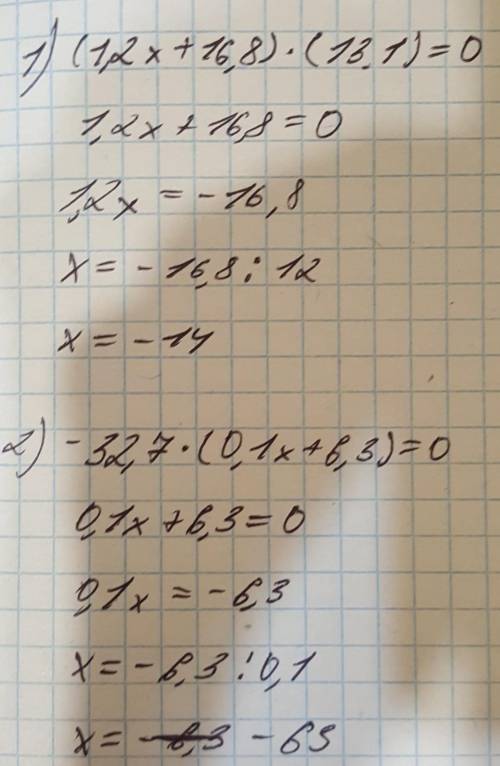 1) (1,2x+16,8)·(13,1)=0
1,2x+16,8=0
1,2x=-16,8
x=-16,8:12
x=-14
2) -32,7·(0,1x+6,3)=0
0,1x+6,3=0
0,1x=-6,3
x=-6,3:0,1
x= -6,3 -63